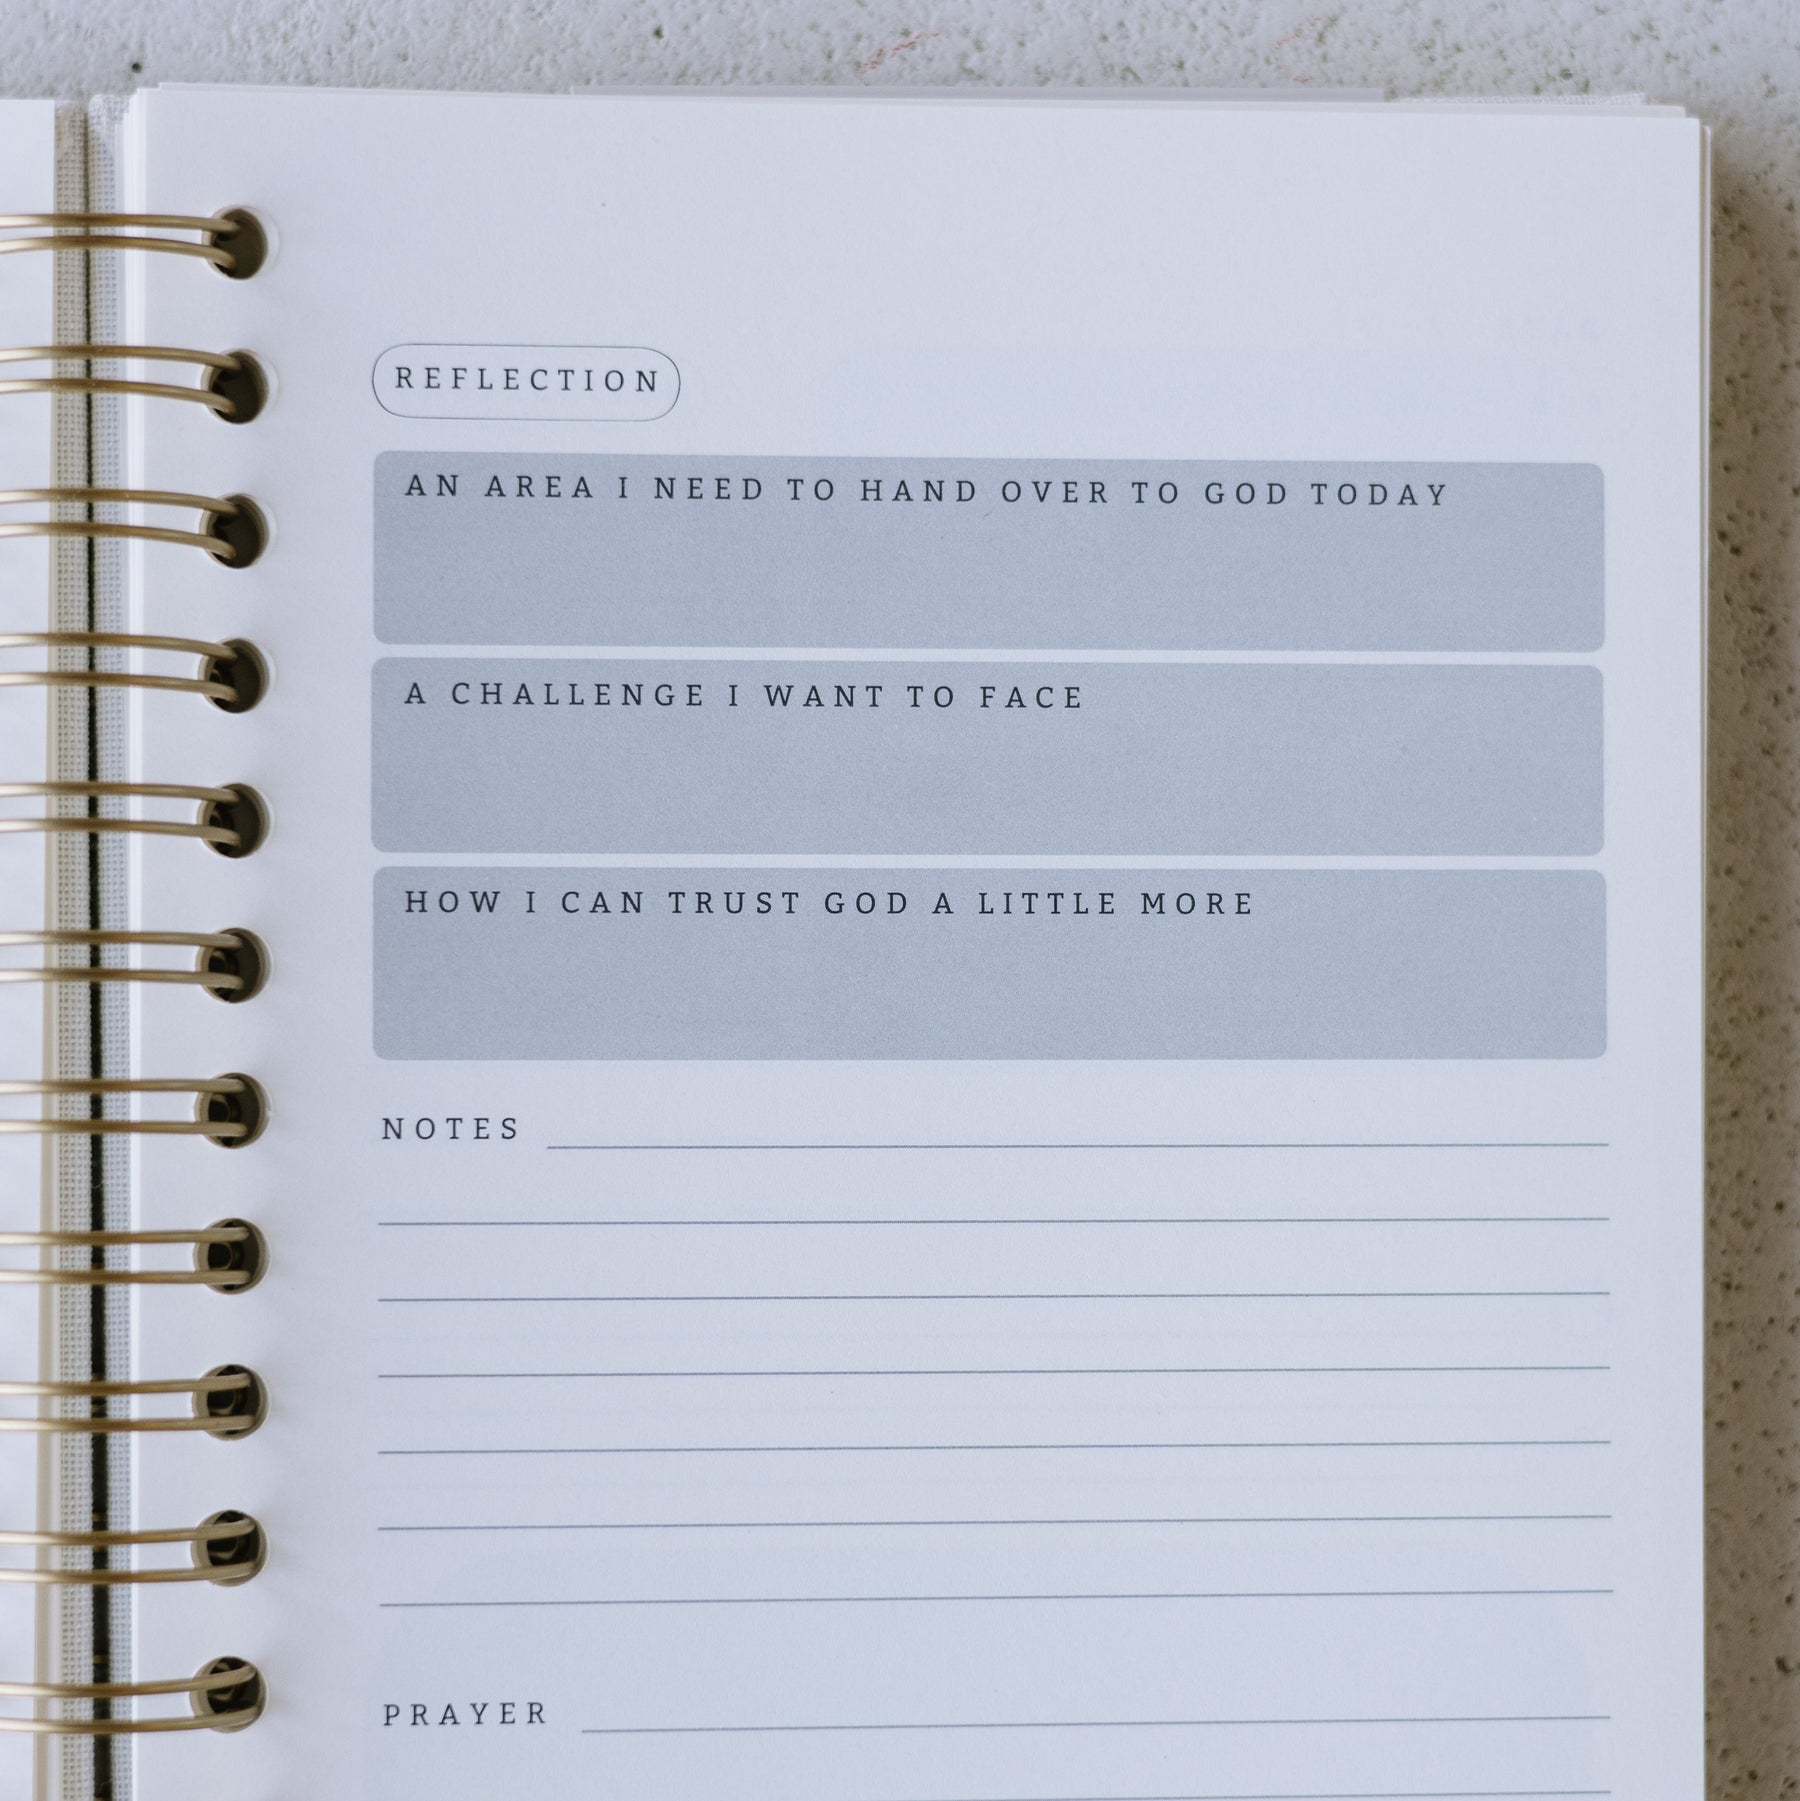 REFLECTION
AN AREA I NEED TO HAND OVER TO GOD TODAY
A CHALLENGE I WANT TO FACE
HOW I CAN TRUST GOD A LITTLE MORE
NOTES
PRAYER